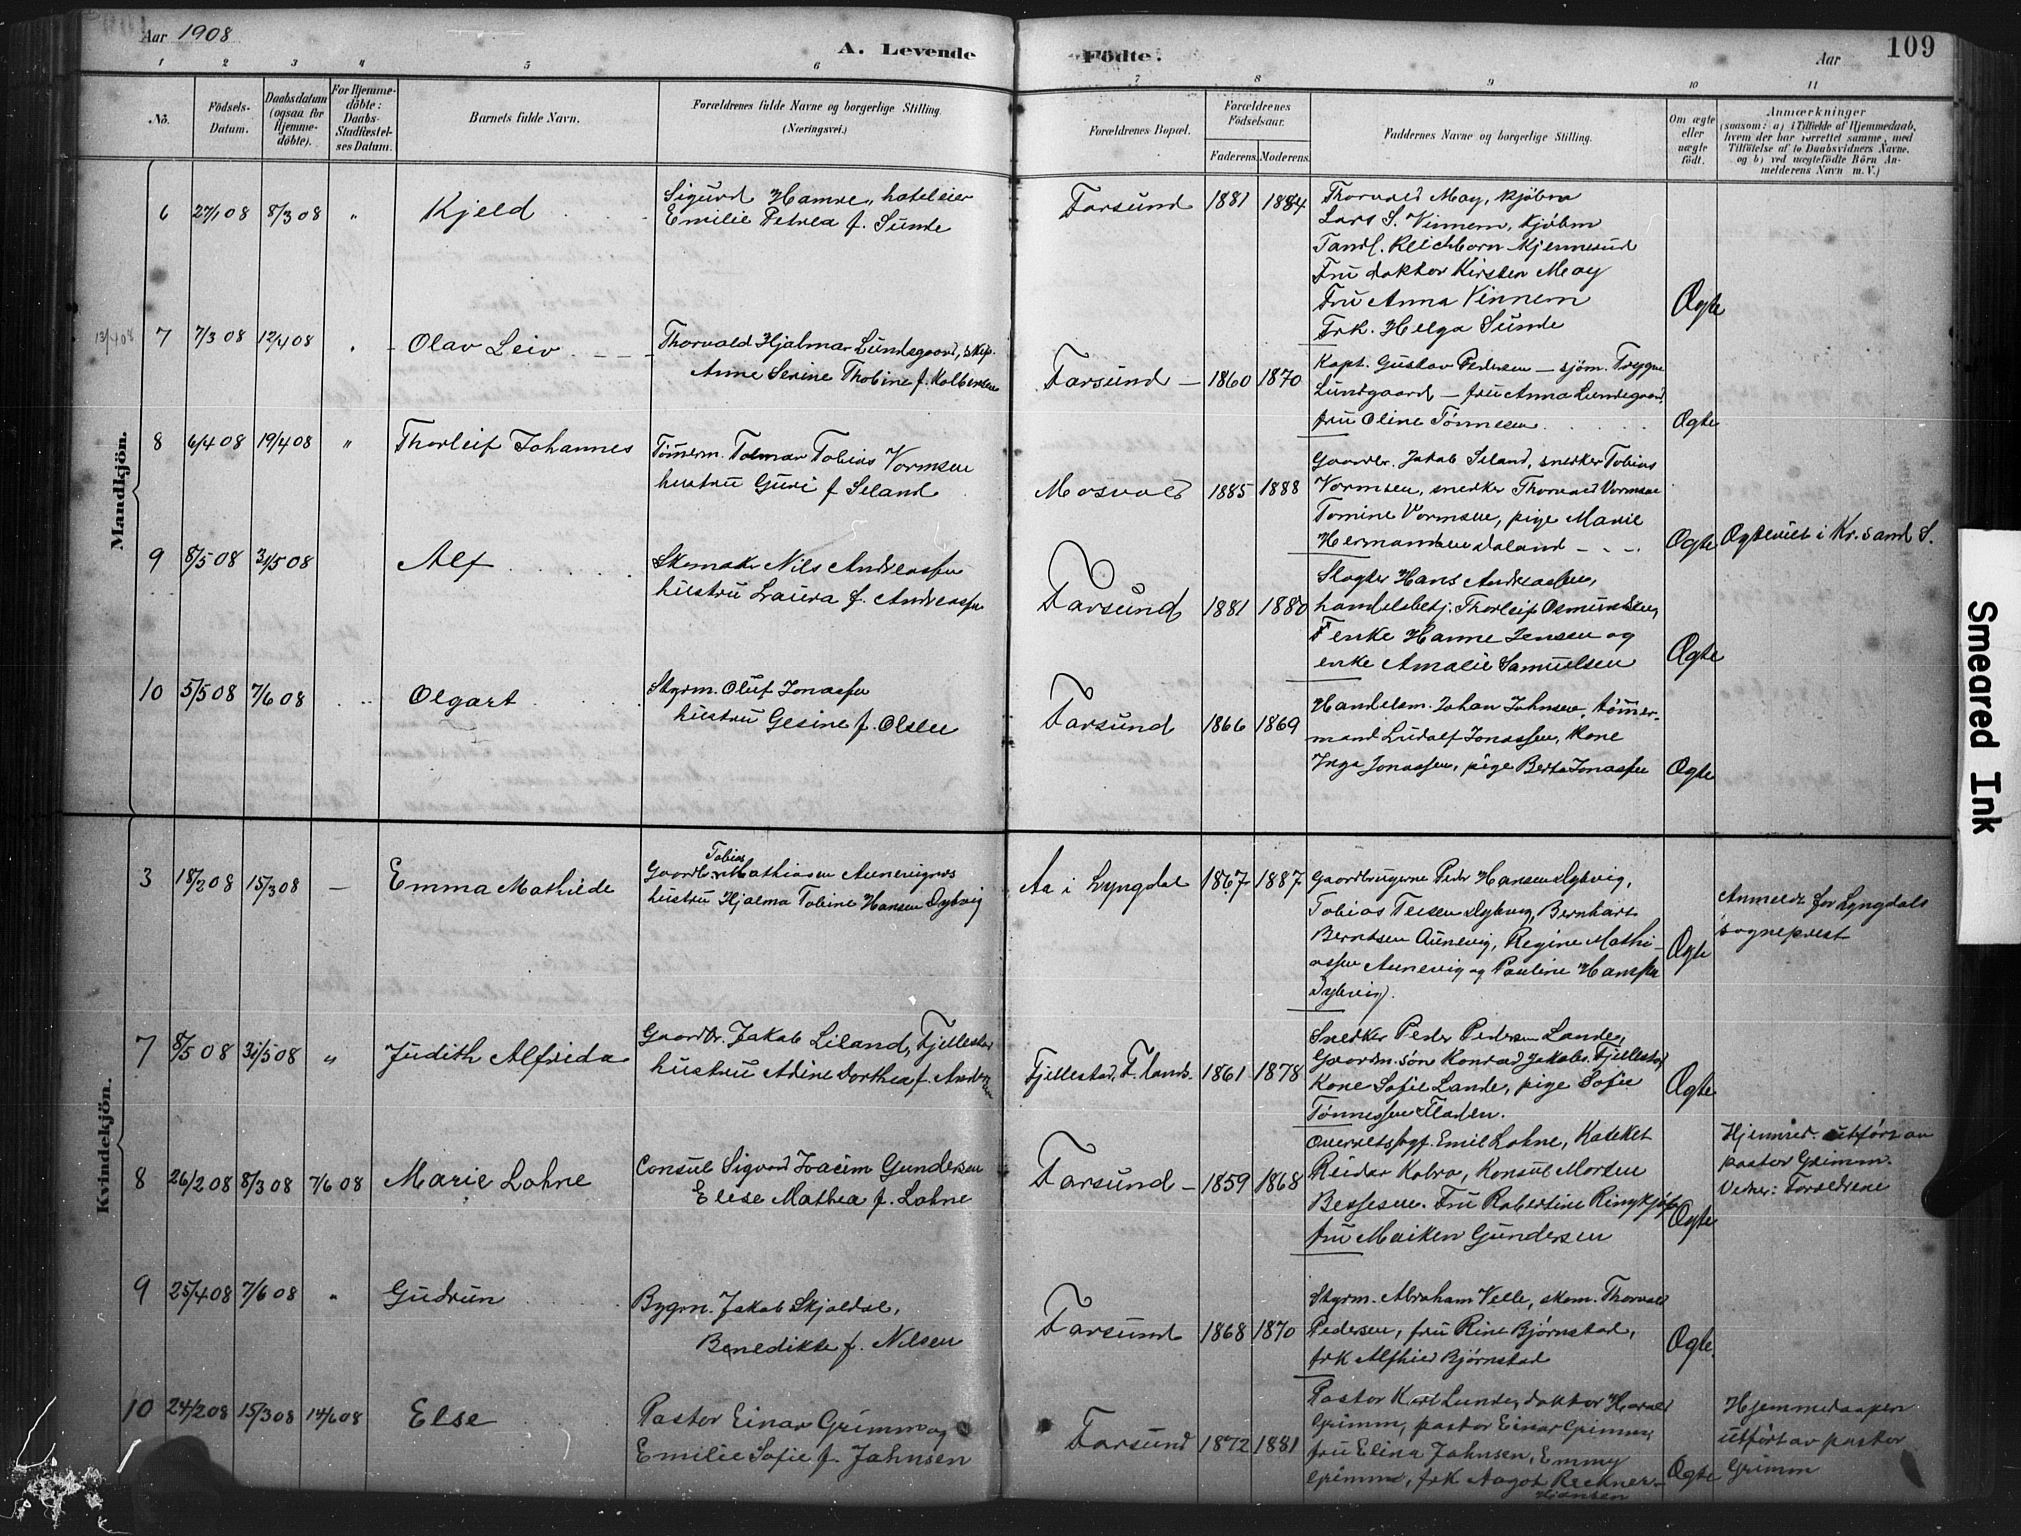 Aar 1908
A. Levende
Födte.
Aar
109
1 2 3 4 5 6 7 8 9 10 11
No.
Födsels-
Datum.
Daabsdatum
(ogsaa for
Hjemme-
döbte).
For Hjemme-
döbte:
Daabs-
Stadfæstel-
ses Datum.
Barnets fulde Navn.
Forældrenes fulde Navne og borgerlige Stilling.
(Næringsvei.)
Forældrenes Bopæl.
Forældrenes
Födselsaar.
Faderens. Moderens.
Faddernes Navne og borgerlige Stilling.
Om ægte
eller
uægte
født.
Anmærkninger
(saasom: a) i Tilfælde af Hjemmedaab,
hvem der har forrettet samme, med
Tilföielse af to Daabsvidners Navne,
og b) ved uægtefödte Börn An-
melderens Navn m. V.)
Mandkjön.
6 27/1 08 8/3 08 " Kjeld
Sigurd Hamre, hoteleier
Emilie Petrea f. Sunde
Farsund 1881 1884
Thorvald May, kjøbm
Lars S. Vinnem, kjøbm
Tandl. Reichborn Kjennerud
Fru doktor Kirsten May
Fru Anna Vinnem
Frk. Helga Sunde
Ægte
13/4 08
7 7/3 08 12/4 08 " Olav Leiv
Thorvald Hjalmar Lundegaard, skip.
Anne Serine Thobine f. Kolbensen
Farsund 1860 1870
Kapt. Gustav Pedersen – sjøm. Trygve
Lundgaard – fru Anna Lundegaard,
fru Oline Tønnesen
Ægte
8 6/4 08 19/4 08 " Thorleif Johannes
Tømrerm. Tolmar Tobias Vormsen
hustru Guri f Seland
Mosvold 1885 1888
Gaardbr. Jakob Seland, snedker Tobias
Vormsen, snedker Thorvald Vormsen
Tomine Vormsen, pige Marie
Hermandsen Daland
Ægte
Ægteviet i Kr.sand S.
9 8/5 08 31/5 08 Alf
Skomaker Nils Andreassen
hustru Laura f. Andreassen
Farsund 1881 1880
Slagter Hans Andreassen,
handelsbetj. Thorleif Osmundsen,
Enke Hanne Jensen og
enke Amalie Samuelsen
Ægte
10 5/5 08 7/6 08 Olgart
Styrm. Oluf Jonassen
hustru Gesine f. Olsen
Farsund 1866 1869
Handelsm. Johan Johnsen, tømmer-
mand Ludolf Jonassen, Kone
Inga Jonassen, pige Berta Jonassen
Ægte
Kvindekjön.
3 18/2 08 15/3 08 – Emma Mathilde
Gaardbr. Tobias Mathiasen Aunevignes
hustru Hjalma Tobine Hansen Dybvig
Aa i Lyngdal 1867 1887
Gaardbrugerne Peder Hansen Dybvig,
Tobias Teisen Dybvig, Bernhart
Berntsen Aunevig, Regine Mathi-
assen Aunevig og Pauline Hansen
Dybvig.
Ægte
Anmeldt for Lyngdals
sogneprest
7 8/5 08 31/5 08 " Judith Alfrida
Gaardbr. Jakob Liland, Fjellestad
hustru Adine Dorthea f. Andersen
Fjellestad, F. lands. 1861 1878
Snedker Peder Pedersen Lande,
Gaardm. søn Konrad Jakobs. Fjellestad,
Kone Sofie Lande, pige Sofie
Tønnessen Fladen.
Ægte
8 26/2 08 8/3 08 7/6 08 Marie Lohne
Consul Sigvard Joacim Gundersen
Elise Mathea f. Lohne
Farsund 1859 1868
Overretssagf. Emil Lohne, Kateket
Reidar Kobro, Konsul Morten
Bessesen. Fru Robertine Ringkjøb
fru Maiken Gundersen
Ægte
Hjemmed. utført av
pastor Grimm.
Vidner: Forældrene
9 25/4 08 7/6 08 " Gudrun
Bygm. Jakob Skjoldal,
Benedikte f. Nilsen
Farsund 1868 1870
Styrm. Abraham Velle, skom. Thorvald
Pedersen, fru Rine Bjørnstad,
frk Alfhild Bjørnstad
Ægte.
10 24/2 08 15/3 08 14/6 08 Else
Pastor Einar Grimm og
Emilie Sofie f. Jahnsen
Farsund 1872 1881
Pastor Karl Lunde, doktor Harald
Grimm, pastor Einar Grimm,
fru Elina Jahnsen, Emmy
Grimm, frk Aagot
Hansen
Ægte
Hjemmedaapen
utført av pastor
Grimm
Smeared Ink